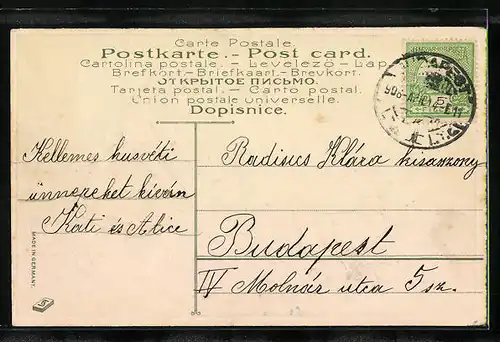 Carte Postale.
Postkarte. - Post card.
Cartolina postale. - Levelező - Lap.
Brefkort. - Briefkaart. - Brevkort.
ОТКРЫТОЕ ПИСЬМО.
Tarjeta postal. - Carto postal.
Union postale universelle.
Dopisnice.
Kellemes husvéti
ünnepeket kíván
Kati és Alice
Radisics Klára kisasszony
Budapest
IV Molnár utca 5 sz.
MADE IN GERMANY.